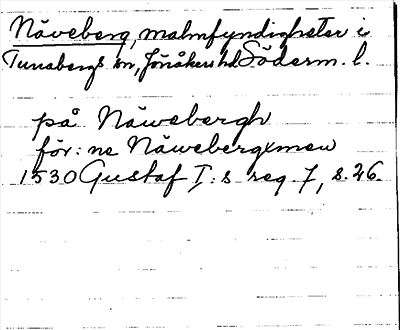 Näveberg, malmfyndigheter i
Tunabergs sn, Jönåkers hd Söderm. l.
på Näwebergh
för: ne Näwebergxmen
1530 Gustaf I: s reg. 7, s. 26.